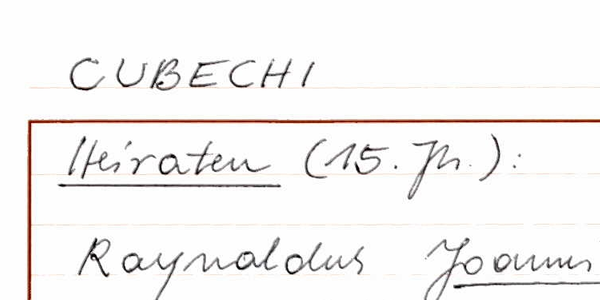 CUBECHI
Heiraten (15. Jh.):
Raynaldus Joannis